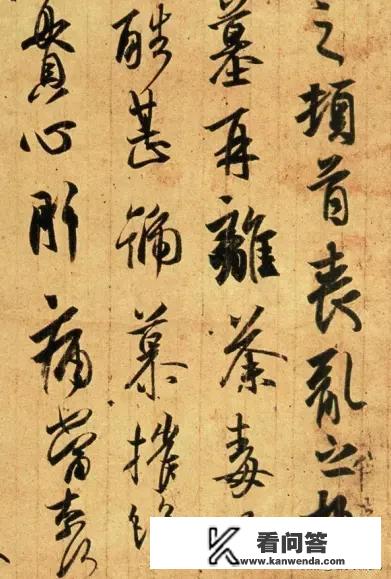 之頓首喪亂之極
墓再離荼毒
酷甚號慕摧絕
貫心肝痛當奈何
看问答
www.kanwenda.com